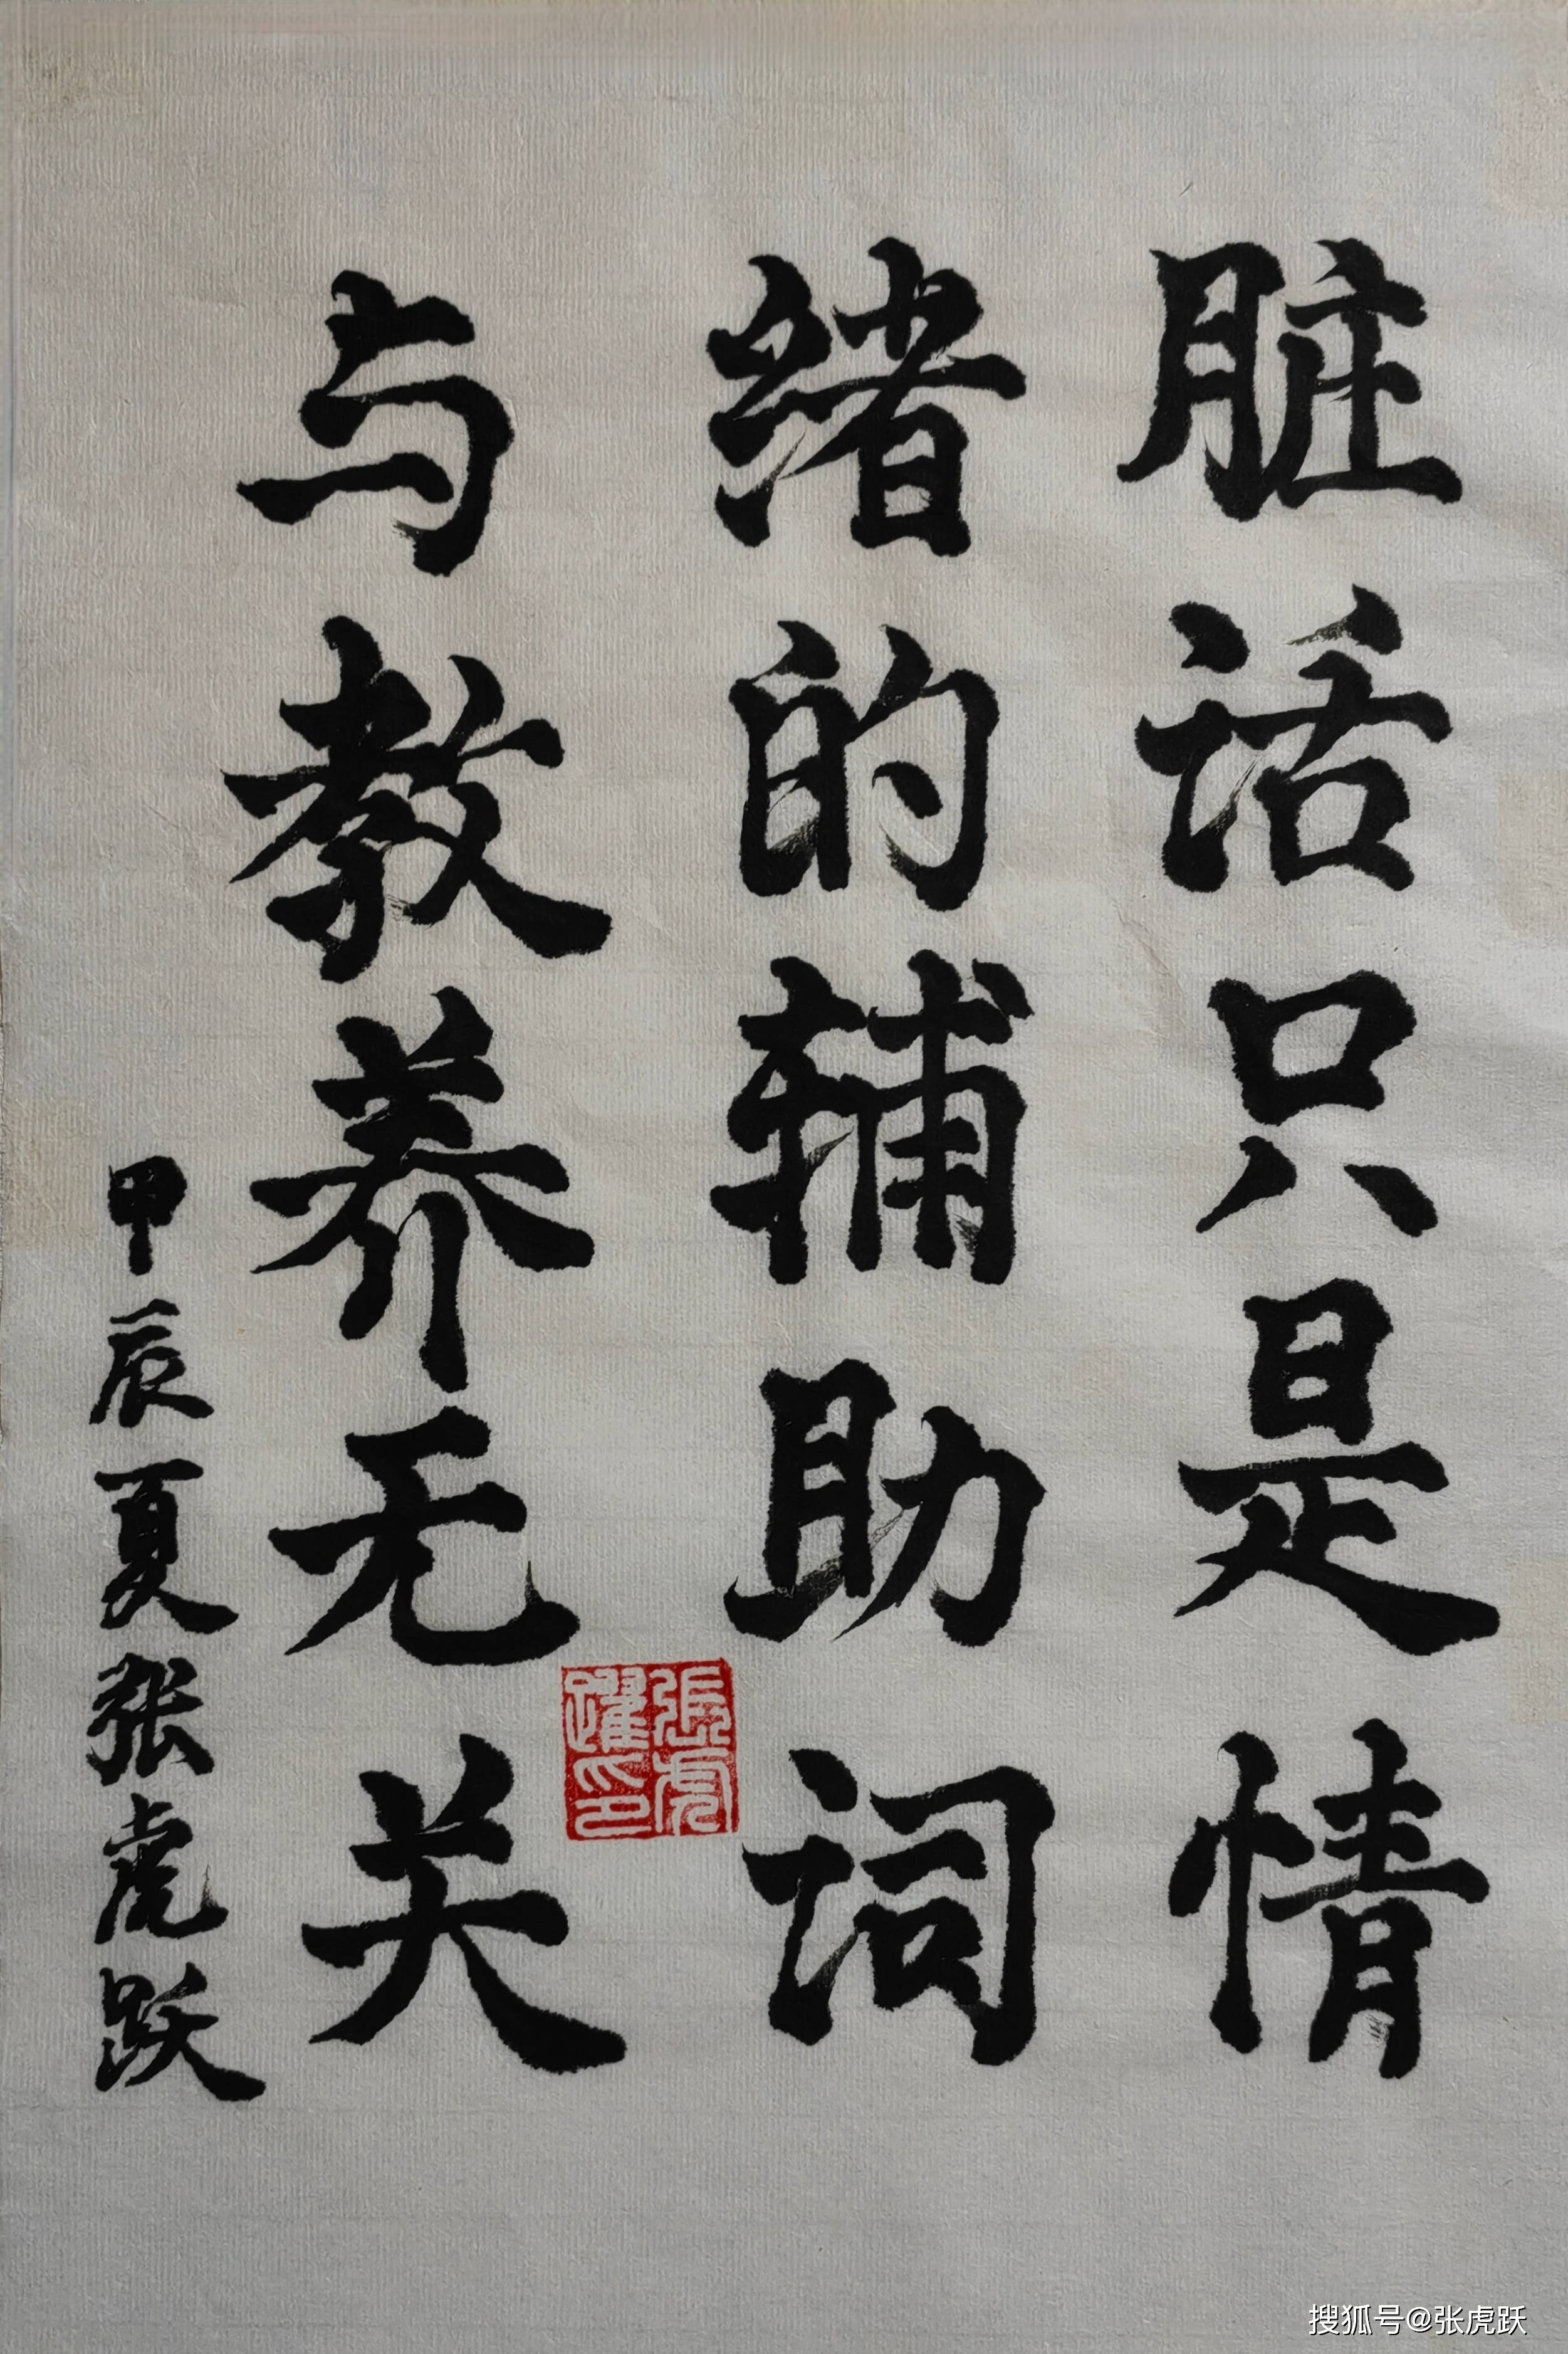 脏话只是情
绪的辅助词
与教养无关
甲辰夏张虎跃
張虎
躍印
搜狐号@张虎跃